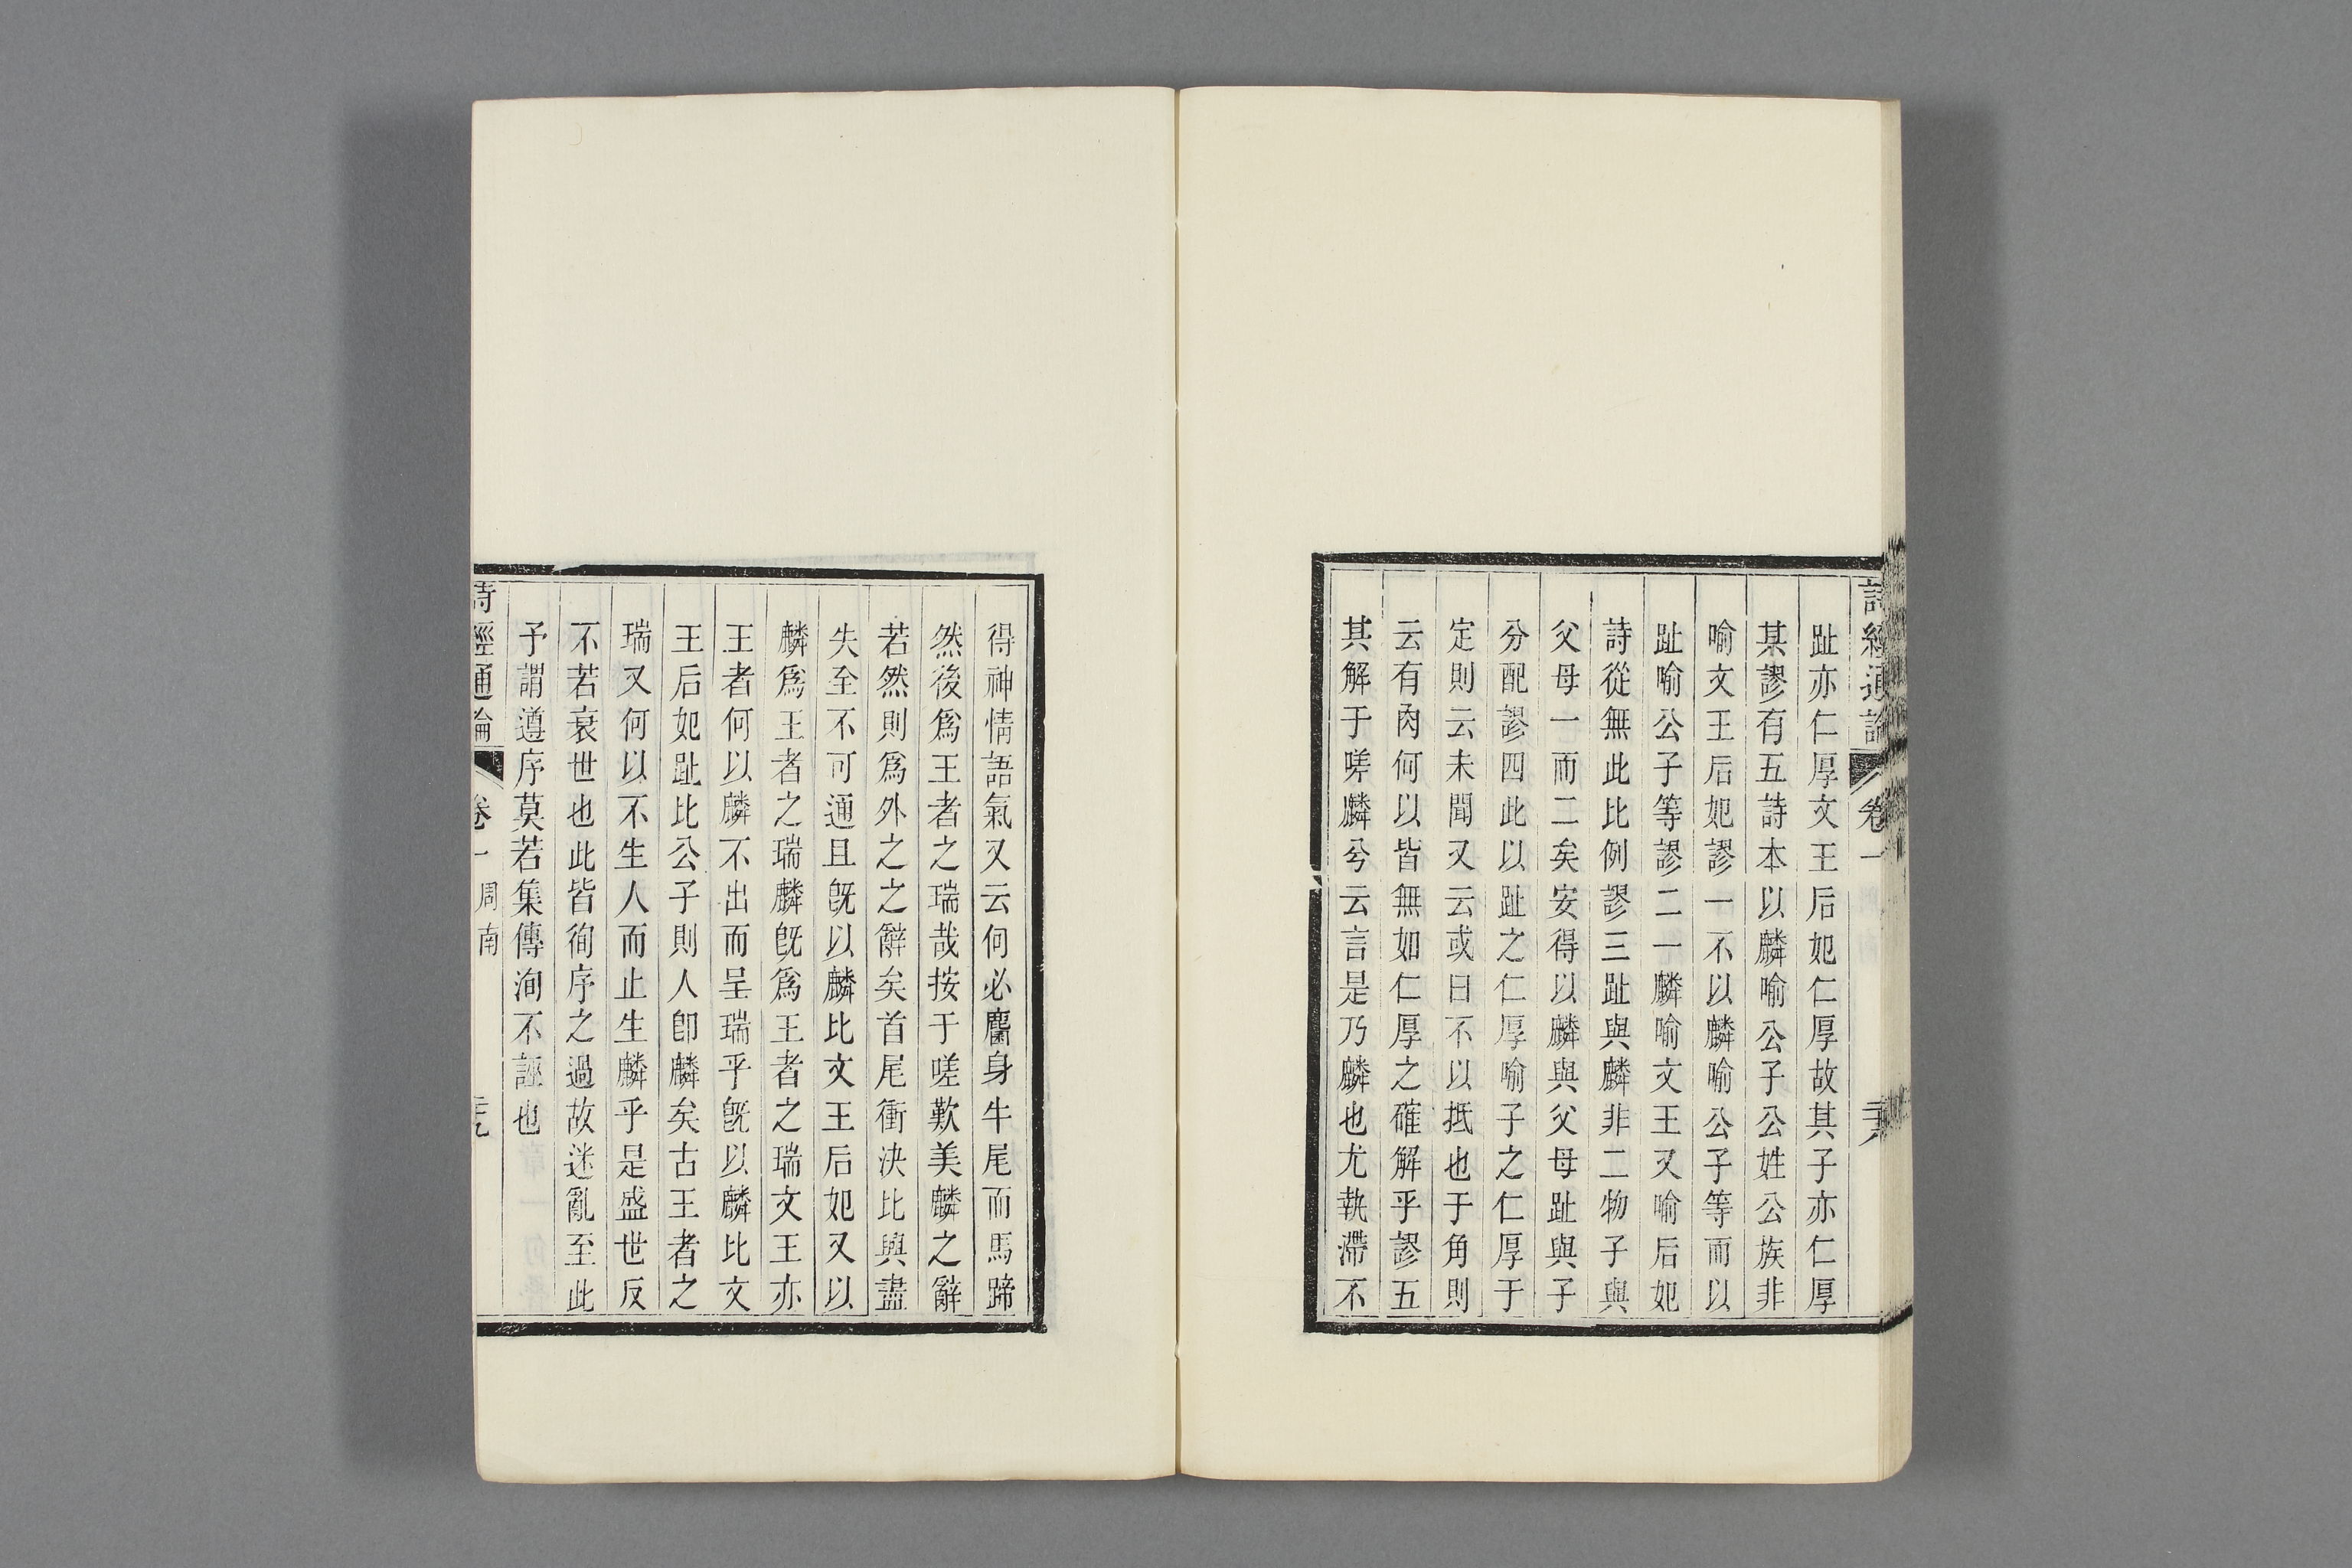 詩經通論 卷一
趾亦仁厚文王后妃仁厚故其子亦仁厚
其謬有五詩本以麟喻公子公姓公族非
喻文王后妃謬一不以麟喻公子等而以
趾喻公子等謬二一麟喻文王又喻后妃
詩從無此比例謬三趾與麟非二物子與
父母一而二矣安得以麟與父母趾與子
分配謬四此以趾之仁厚喻子之仁厚于
定則云未聞又云或曰不以抵也于角則
云有肉何以皆無如仁厚之確解乎謬五
其解于嗟麟兮云言是乃麟也尤執滯不
得神情語氣又云何必麕身牛尾而馬蹄
然後爲王者之瑞哉按于嗟歎美麟之辭
若然則爲外之之辭矣首尾衝決比興盡
失至不可通且旣以麟比文王后妃又以
麟爲王者之瑞麟旣爲王者之瑞文王亦
王者何以麟不出而呈瑞乎旣以麟比文
王后妃趾比公子則人卽麟矣古王者之
瑞又何以不生人而止生麟乎是盛世反
不若衰世也此皆徇序之過故迷亂至此
予謂遵序莫若集傳洵不誣也
詩經通論 卷一 周南